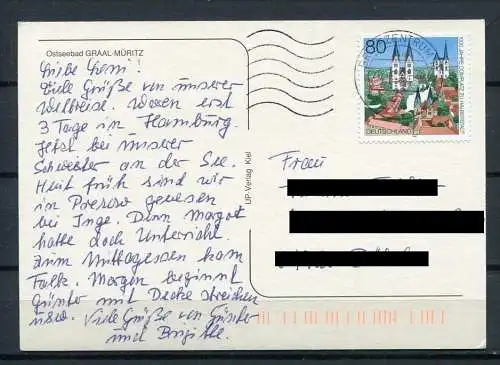 Ostseebad GRAAL-MÜRITZ
Liebe Leni!
Viele Grüße von unserer
Weltreise. Waren erst
3 Tage in Hamburg.
Jetzt bei unserer
Schwester an der See.
Heut früh sind wir
in Prerow gewesen
bei Inge. Denn Margot
hatte doch Unterricht.
Zum Mittagessen kam
Falk. Morgen beginnt
Günter mit Decke streichen
usw. Viele Grüße von Günter
und Brigitte.
UP-Verlag Kiel
80
DEUTSCHLAND
BRIEFZENTRUM
Frau